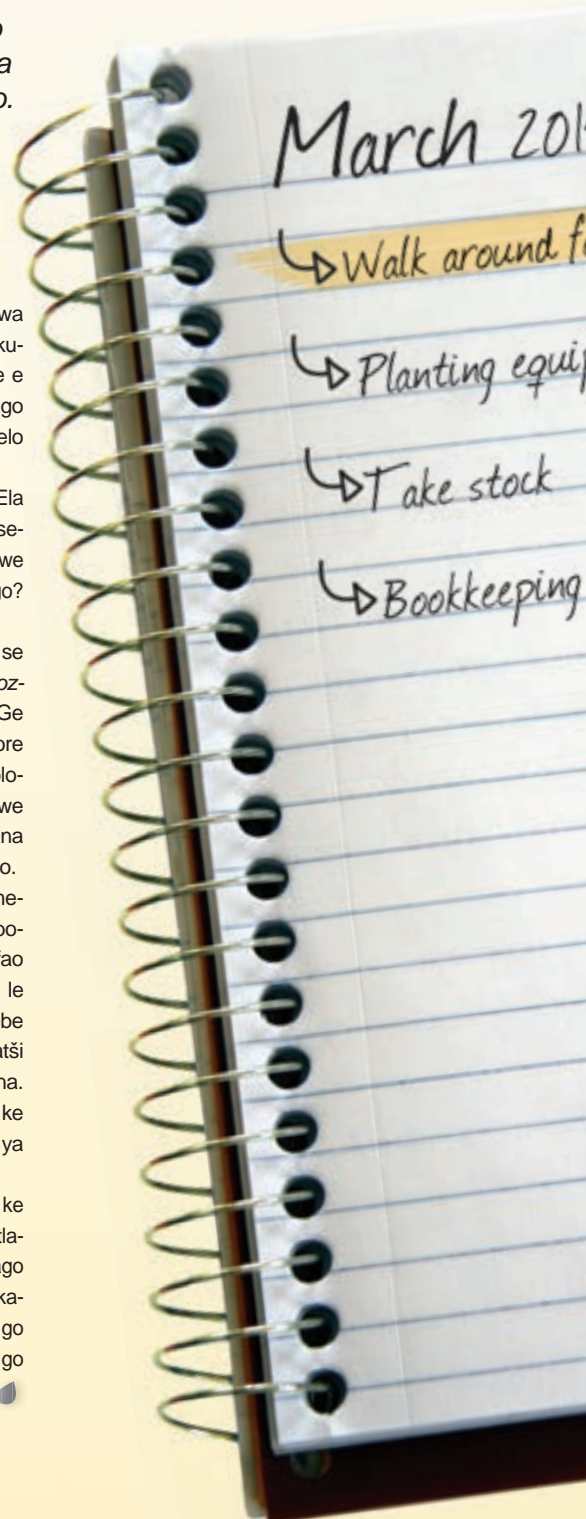 o
a
o.
wa
ku-
e e
go
elo
Ela
se-
we
go?
se
oz-
Ge
ore
olo-
we
na
o.
ne-
oo-
fao
le
be
atši
na.
ke
ya
ke
tla-
ago
ka-
go
go
March 201
Walk around f
Planting equip
Take stock
Bookkeeping